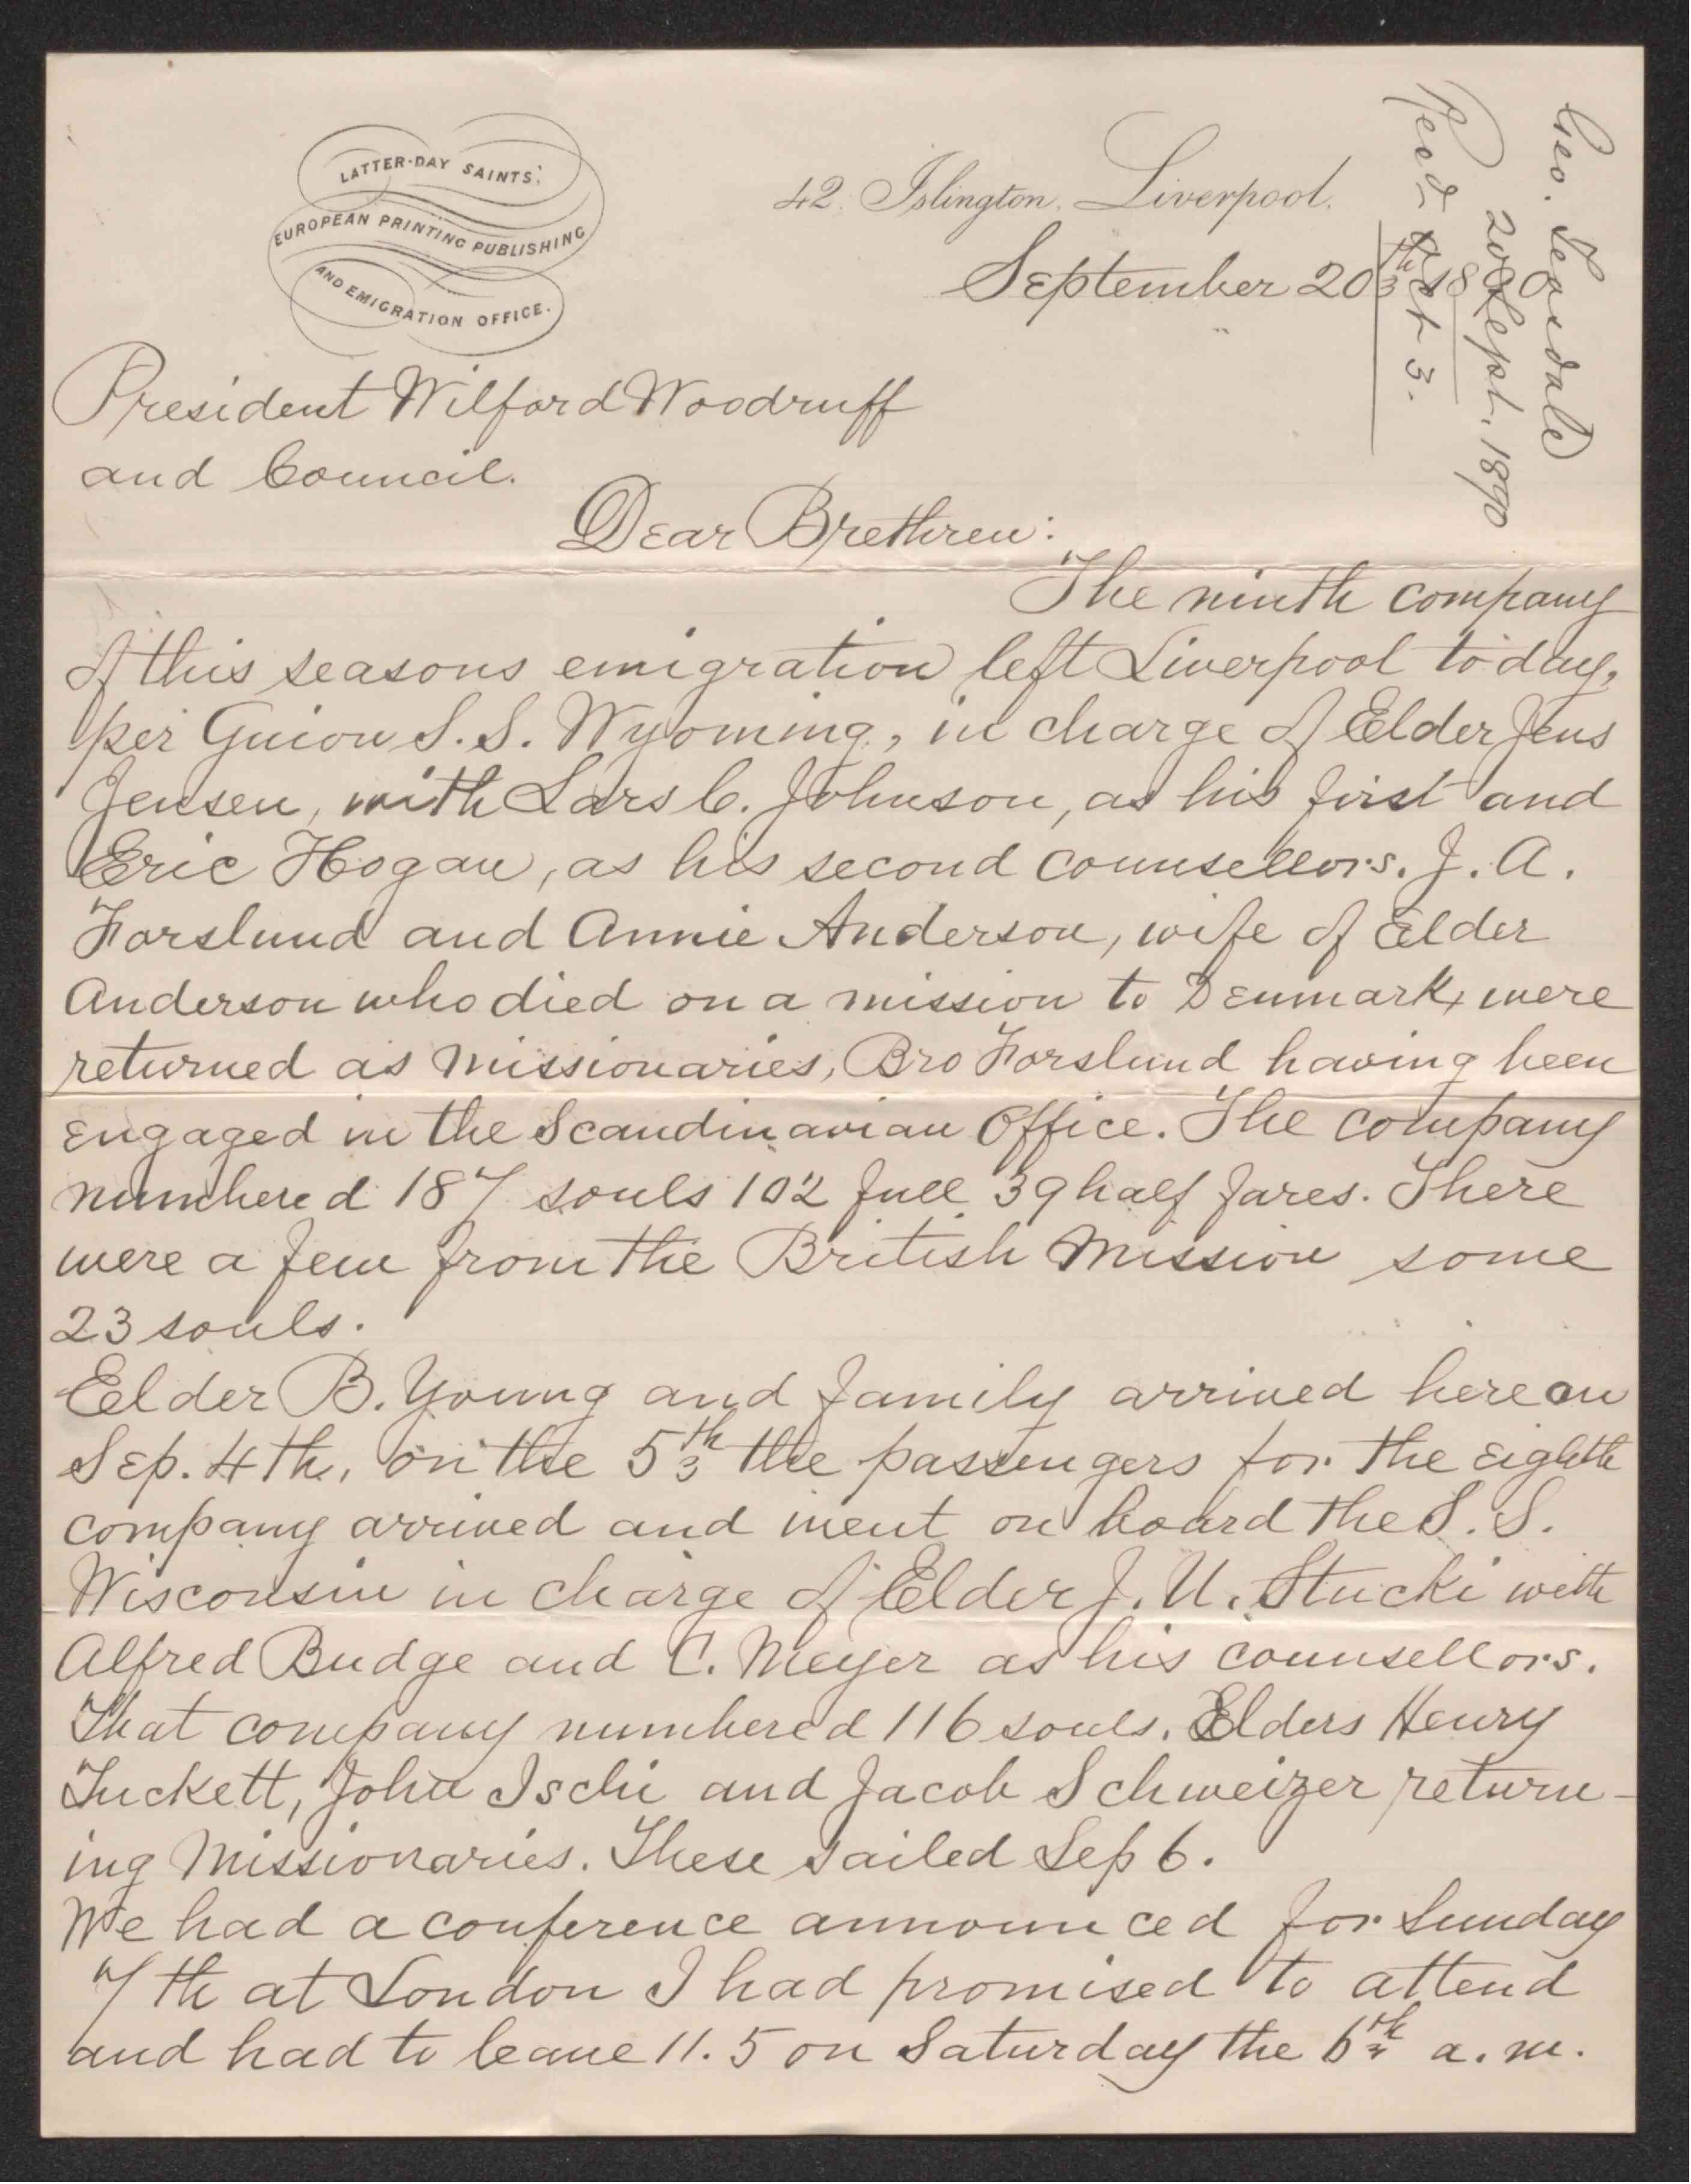 LATTER-DAY SAINTS'
EUROPEAN PRINTING PUBLISHING
AND EMIGRATION OFFICE.
42. Islington. Liverpool.
September 20th 1890
Geo. Teasdale
20 Sept. 1890
Recd Oct 3.
President Wilford Woodruff
and Council.
Dear Brethren:
The ninth company
of this seasons emigration left Liverpool to day,
per Guion S.S. Wyoming, in charge of Elder Jens
Jensen, with Lars C. Johnson, as his first and
Eric Hogan, as his second counsellors. J. A.
Forslund and Annie Anderson, wife of Elder
Anderson who died on a mission to Denmark, were
returned as missionaries, Bro Forslund having been
engaged in the Scandinavian Office. The company
numbered 187 souls 102 full 39 half fares. There
were a few from the British Mission some
23 souls.
Elder B. Young and family arrived here on
Sep. 4th, on the 5th the passengers for the eighth
company arrived and went on board the S. S.
Wisconsin in charge of Elder J. U. Stucki with
Alfred Budge and C. Meyer as his counsellors.
That company numbered 116 souls. Elders Henry
Tuckett, John Ischi and Jacob Schweizer return-
ing Missionaries. These sailed Sep 6.
We had a conference announced for Sunday
7th at London I had promised to attend
and had to leave 11.5 on Saturday the 6th a.m.